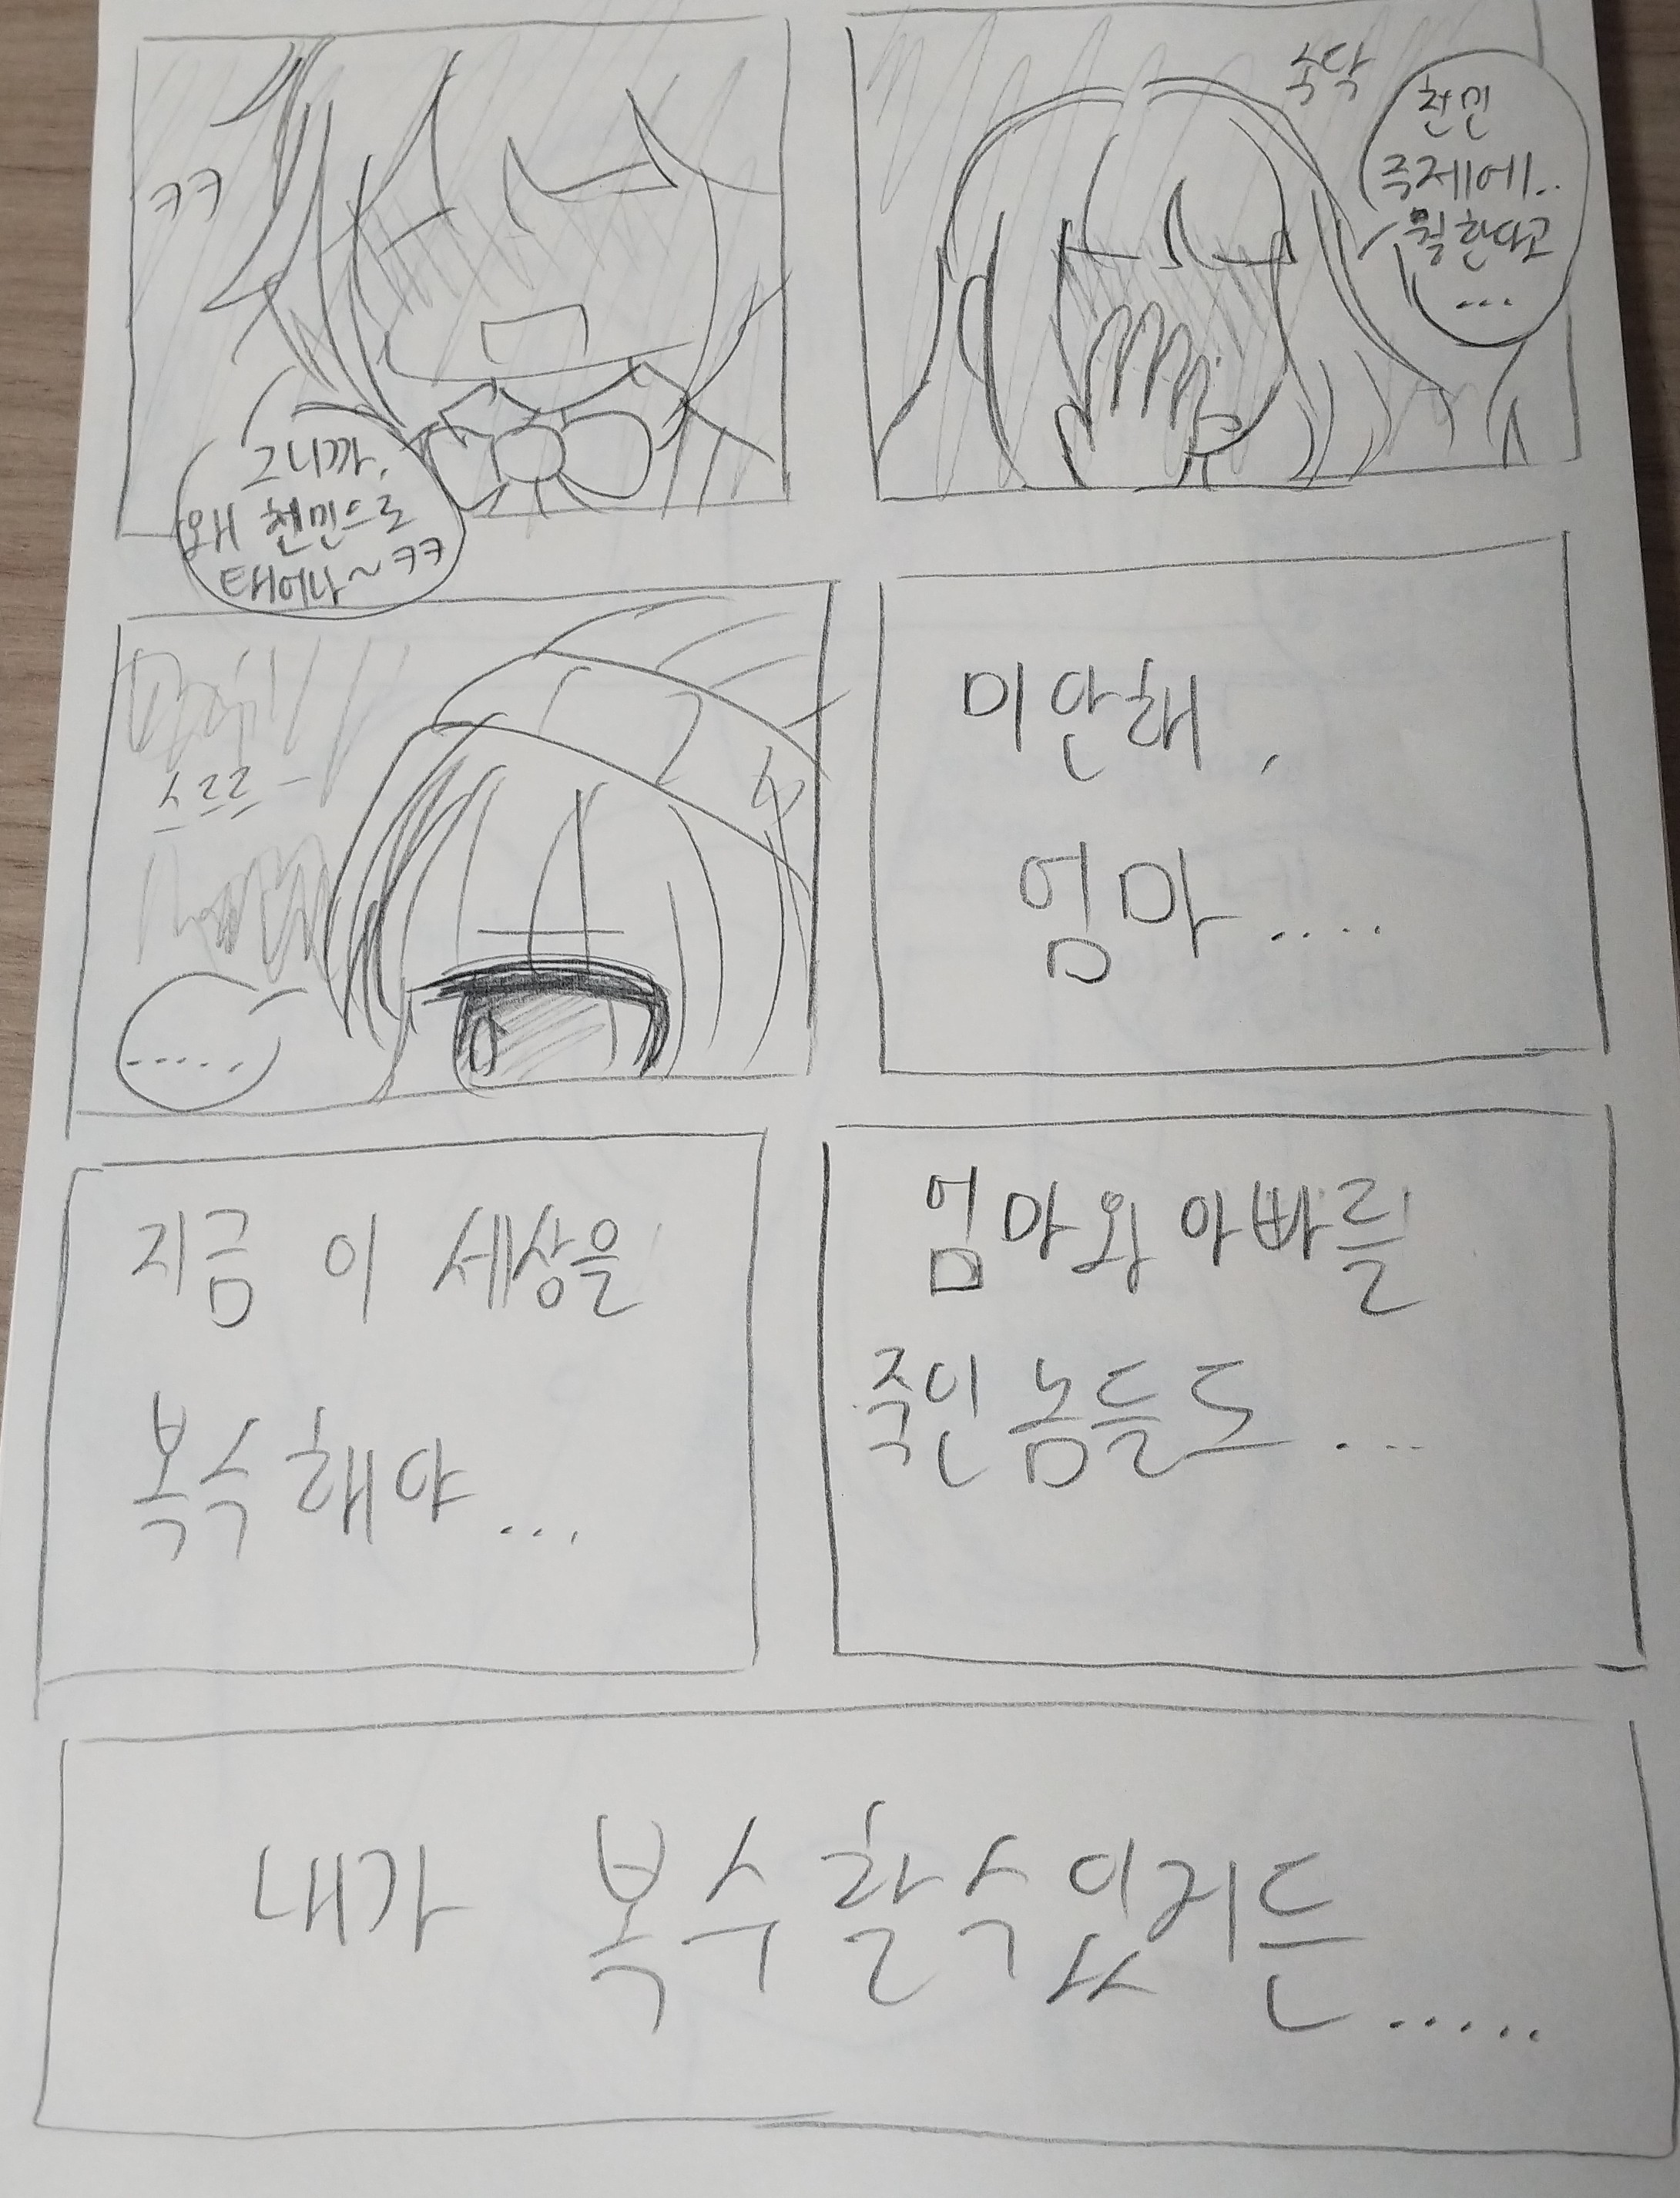 숙닥
천민
주제에..
뭘 한다고
...
ㅋㅋ
그니까,
왜 천민으로
태어나~ㅋㅋ
미안해,
엄마....
스르르-
.....
엄마와 아빠를
죽인 놈들도...
지금 이 세상을
복수해야...
내가 복수할수있거든.....